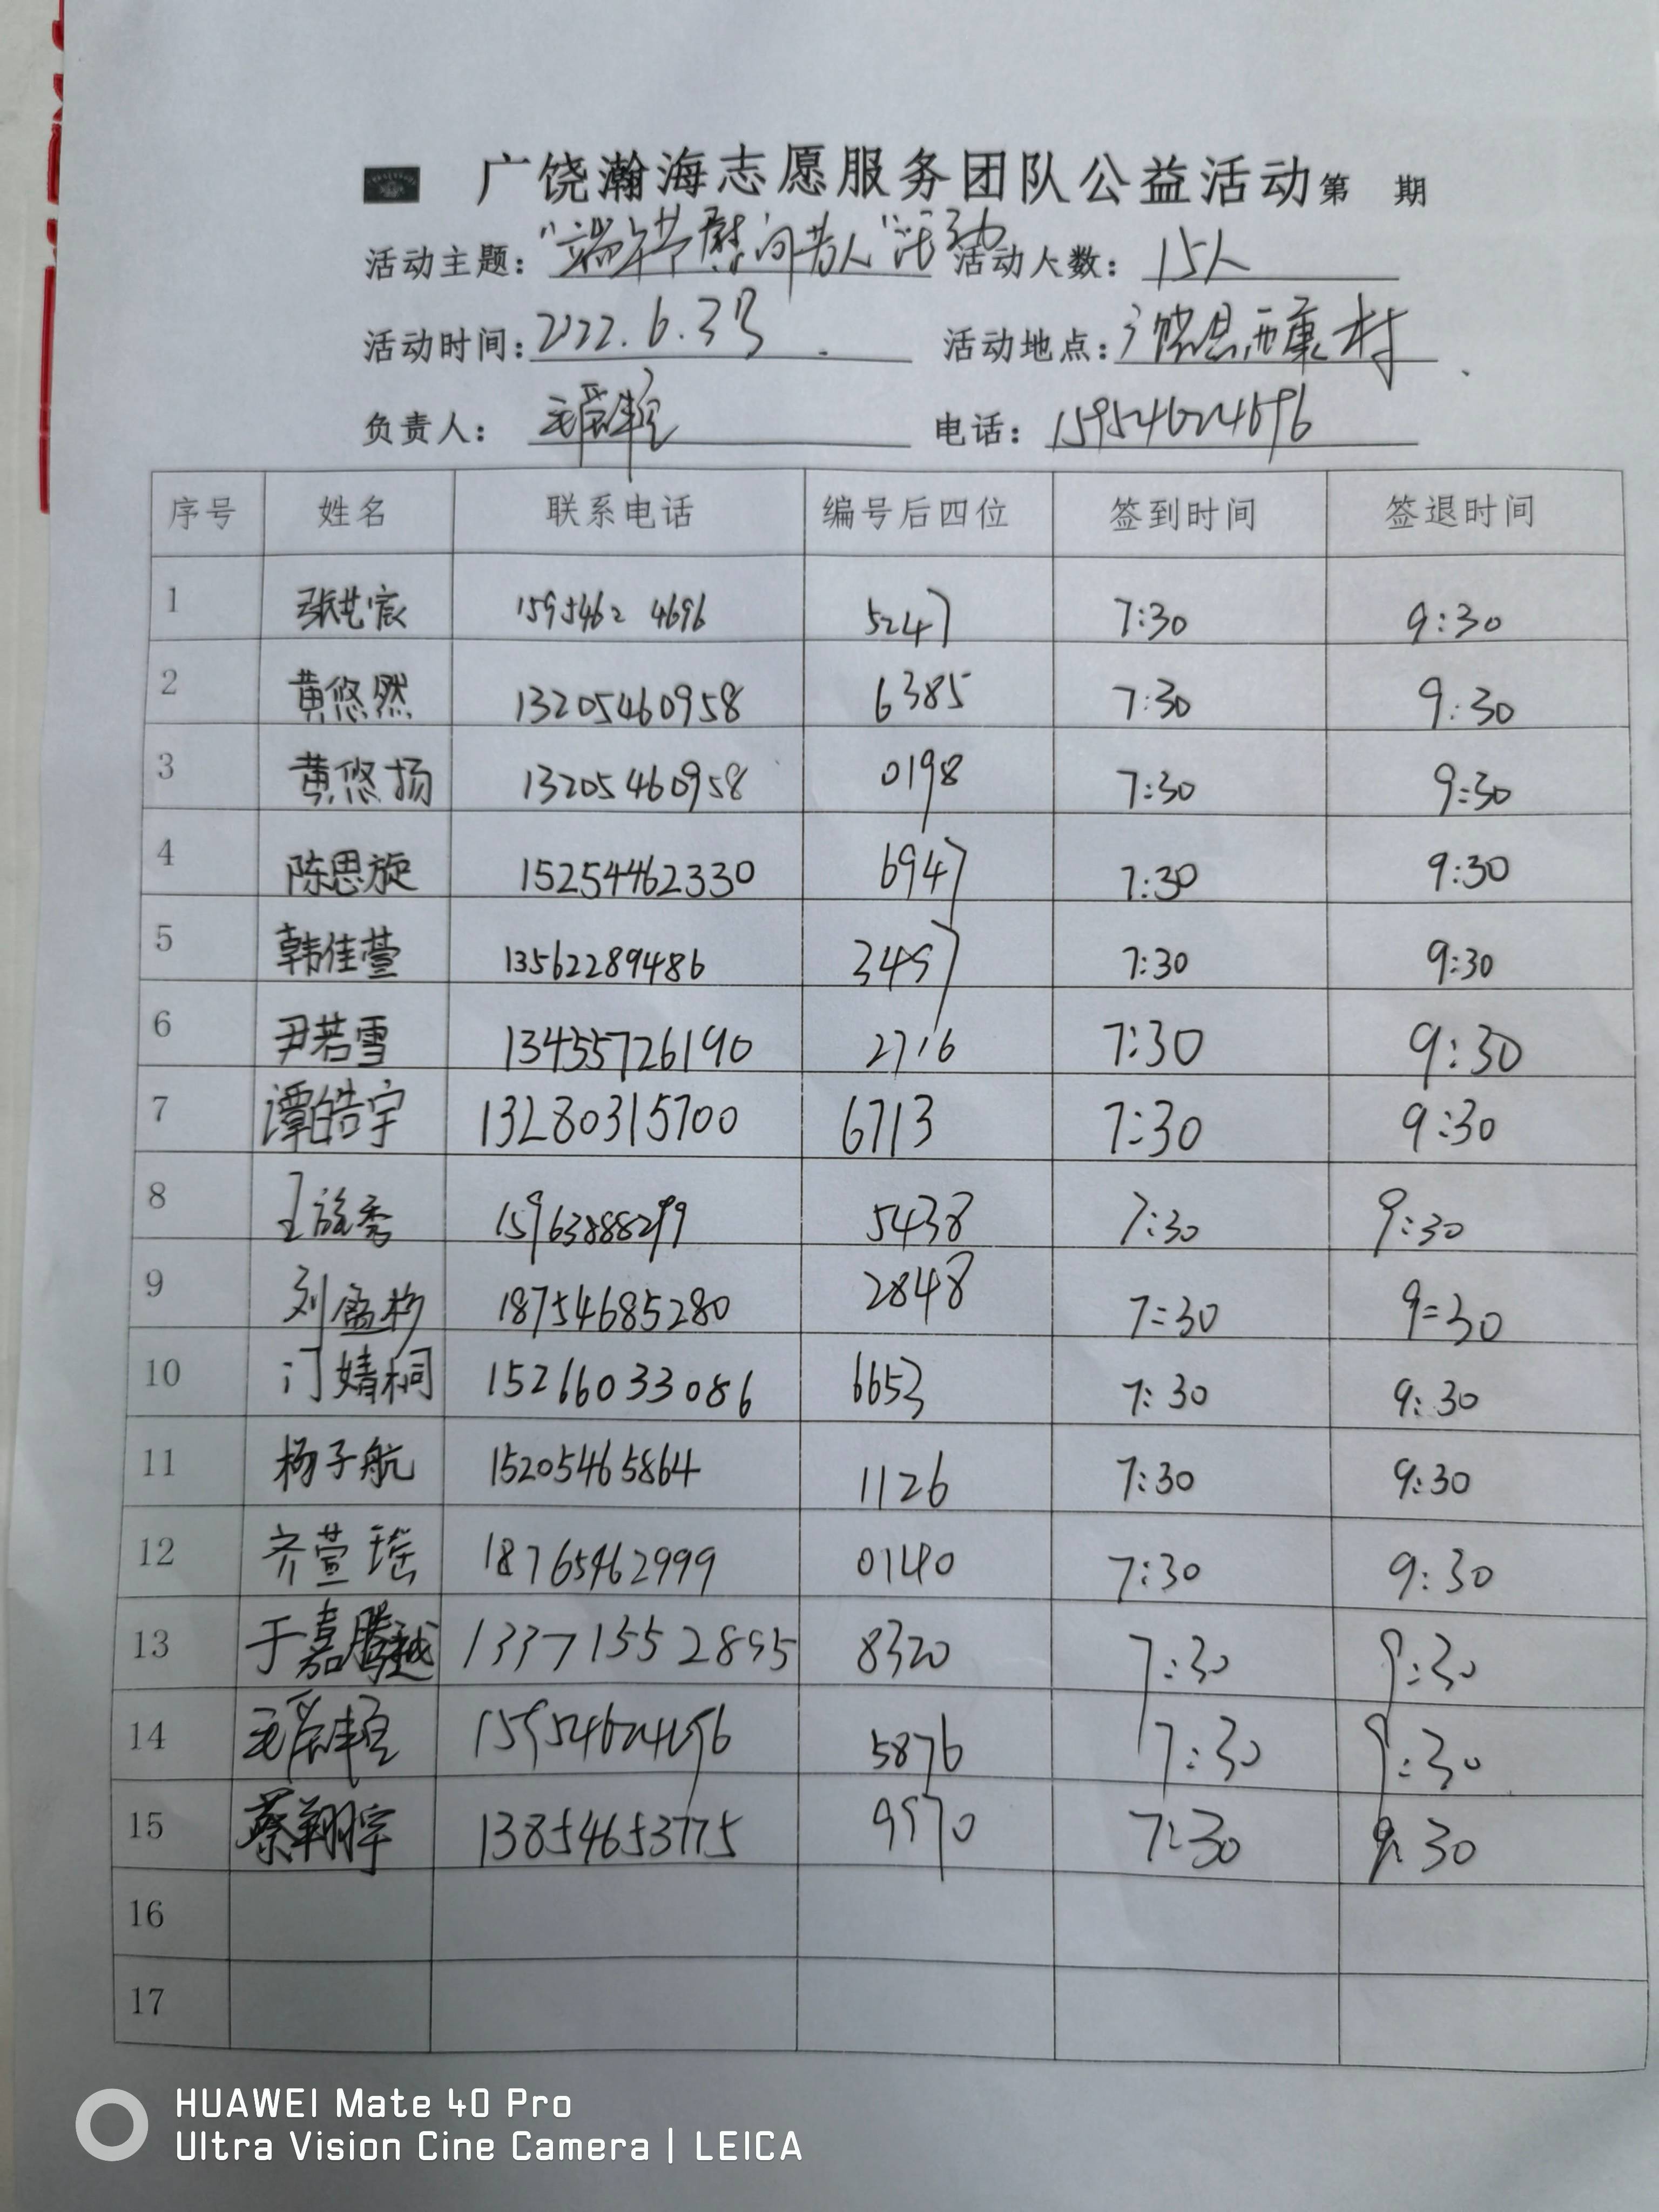 广饶瀚海志愿服务团队公益活动第 期
活动主题：“端午节慰问老人”活动 活动人数：15人
活动时间：2022.6.3号 活动地点：广饶县西康村
负责人： 电话：15954624696
序号 姓名 联系电话 编号后四位 签到时间 签退时间
1 张艺宸 15954624696 5247 7:30 9:30
2 黄悠然 13205460958 6385 7:30 9:30
3 黄悠扬 13205460958 0198 7:30 9:30
4 陈思旋 15254462330 6947 7:30 9:30
5 韩佳萱 13562289486 3457 7:30 9:30
6 尹若雪 13455726190 2716 7:30 9:30
7 谭皓宇 13280315700 6713 7:30 9:30
8 王 秀 15963888299 5438 7:30 9:30
9 刘盈彤 18754685280 2848 7:30 9:30
10 门婧桐 15266033086 6653 7:30 9:30
11 杨子航 15205465864 1126 7:30 9:30
12 齐萱瑶 18765462999 0140 7:30 9:30
13 于嘉腾越 13371552895 8320 7:30 9:30
14 15954624696 5876 7:30 9:30
15 蔡翔宇 13854653775 9570 7:30 9:30
16
17
HUAWEI Mate 40 Pro
Ultra Vision Cine Camera | LEICA